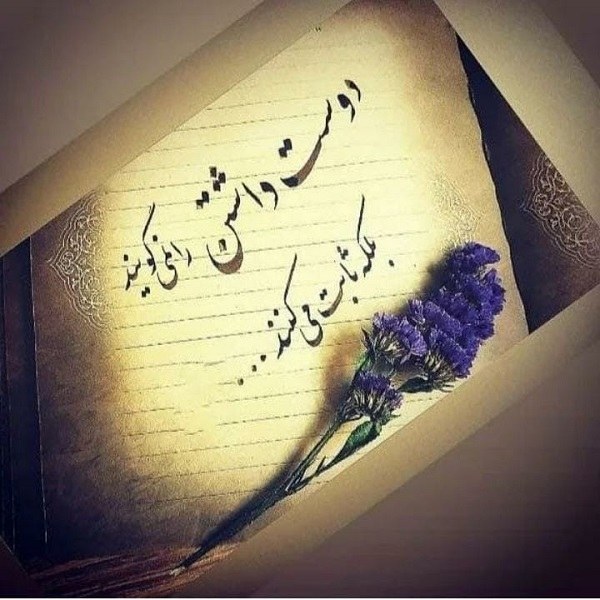 دوست داشتن را نمی گویند
بلکه ثابت می کنند...